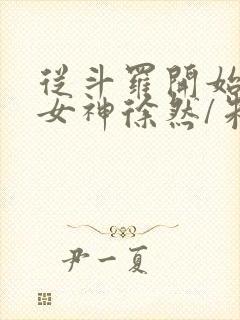 從斗羅開始
女神徐然/朱
尹一夏